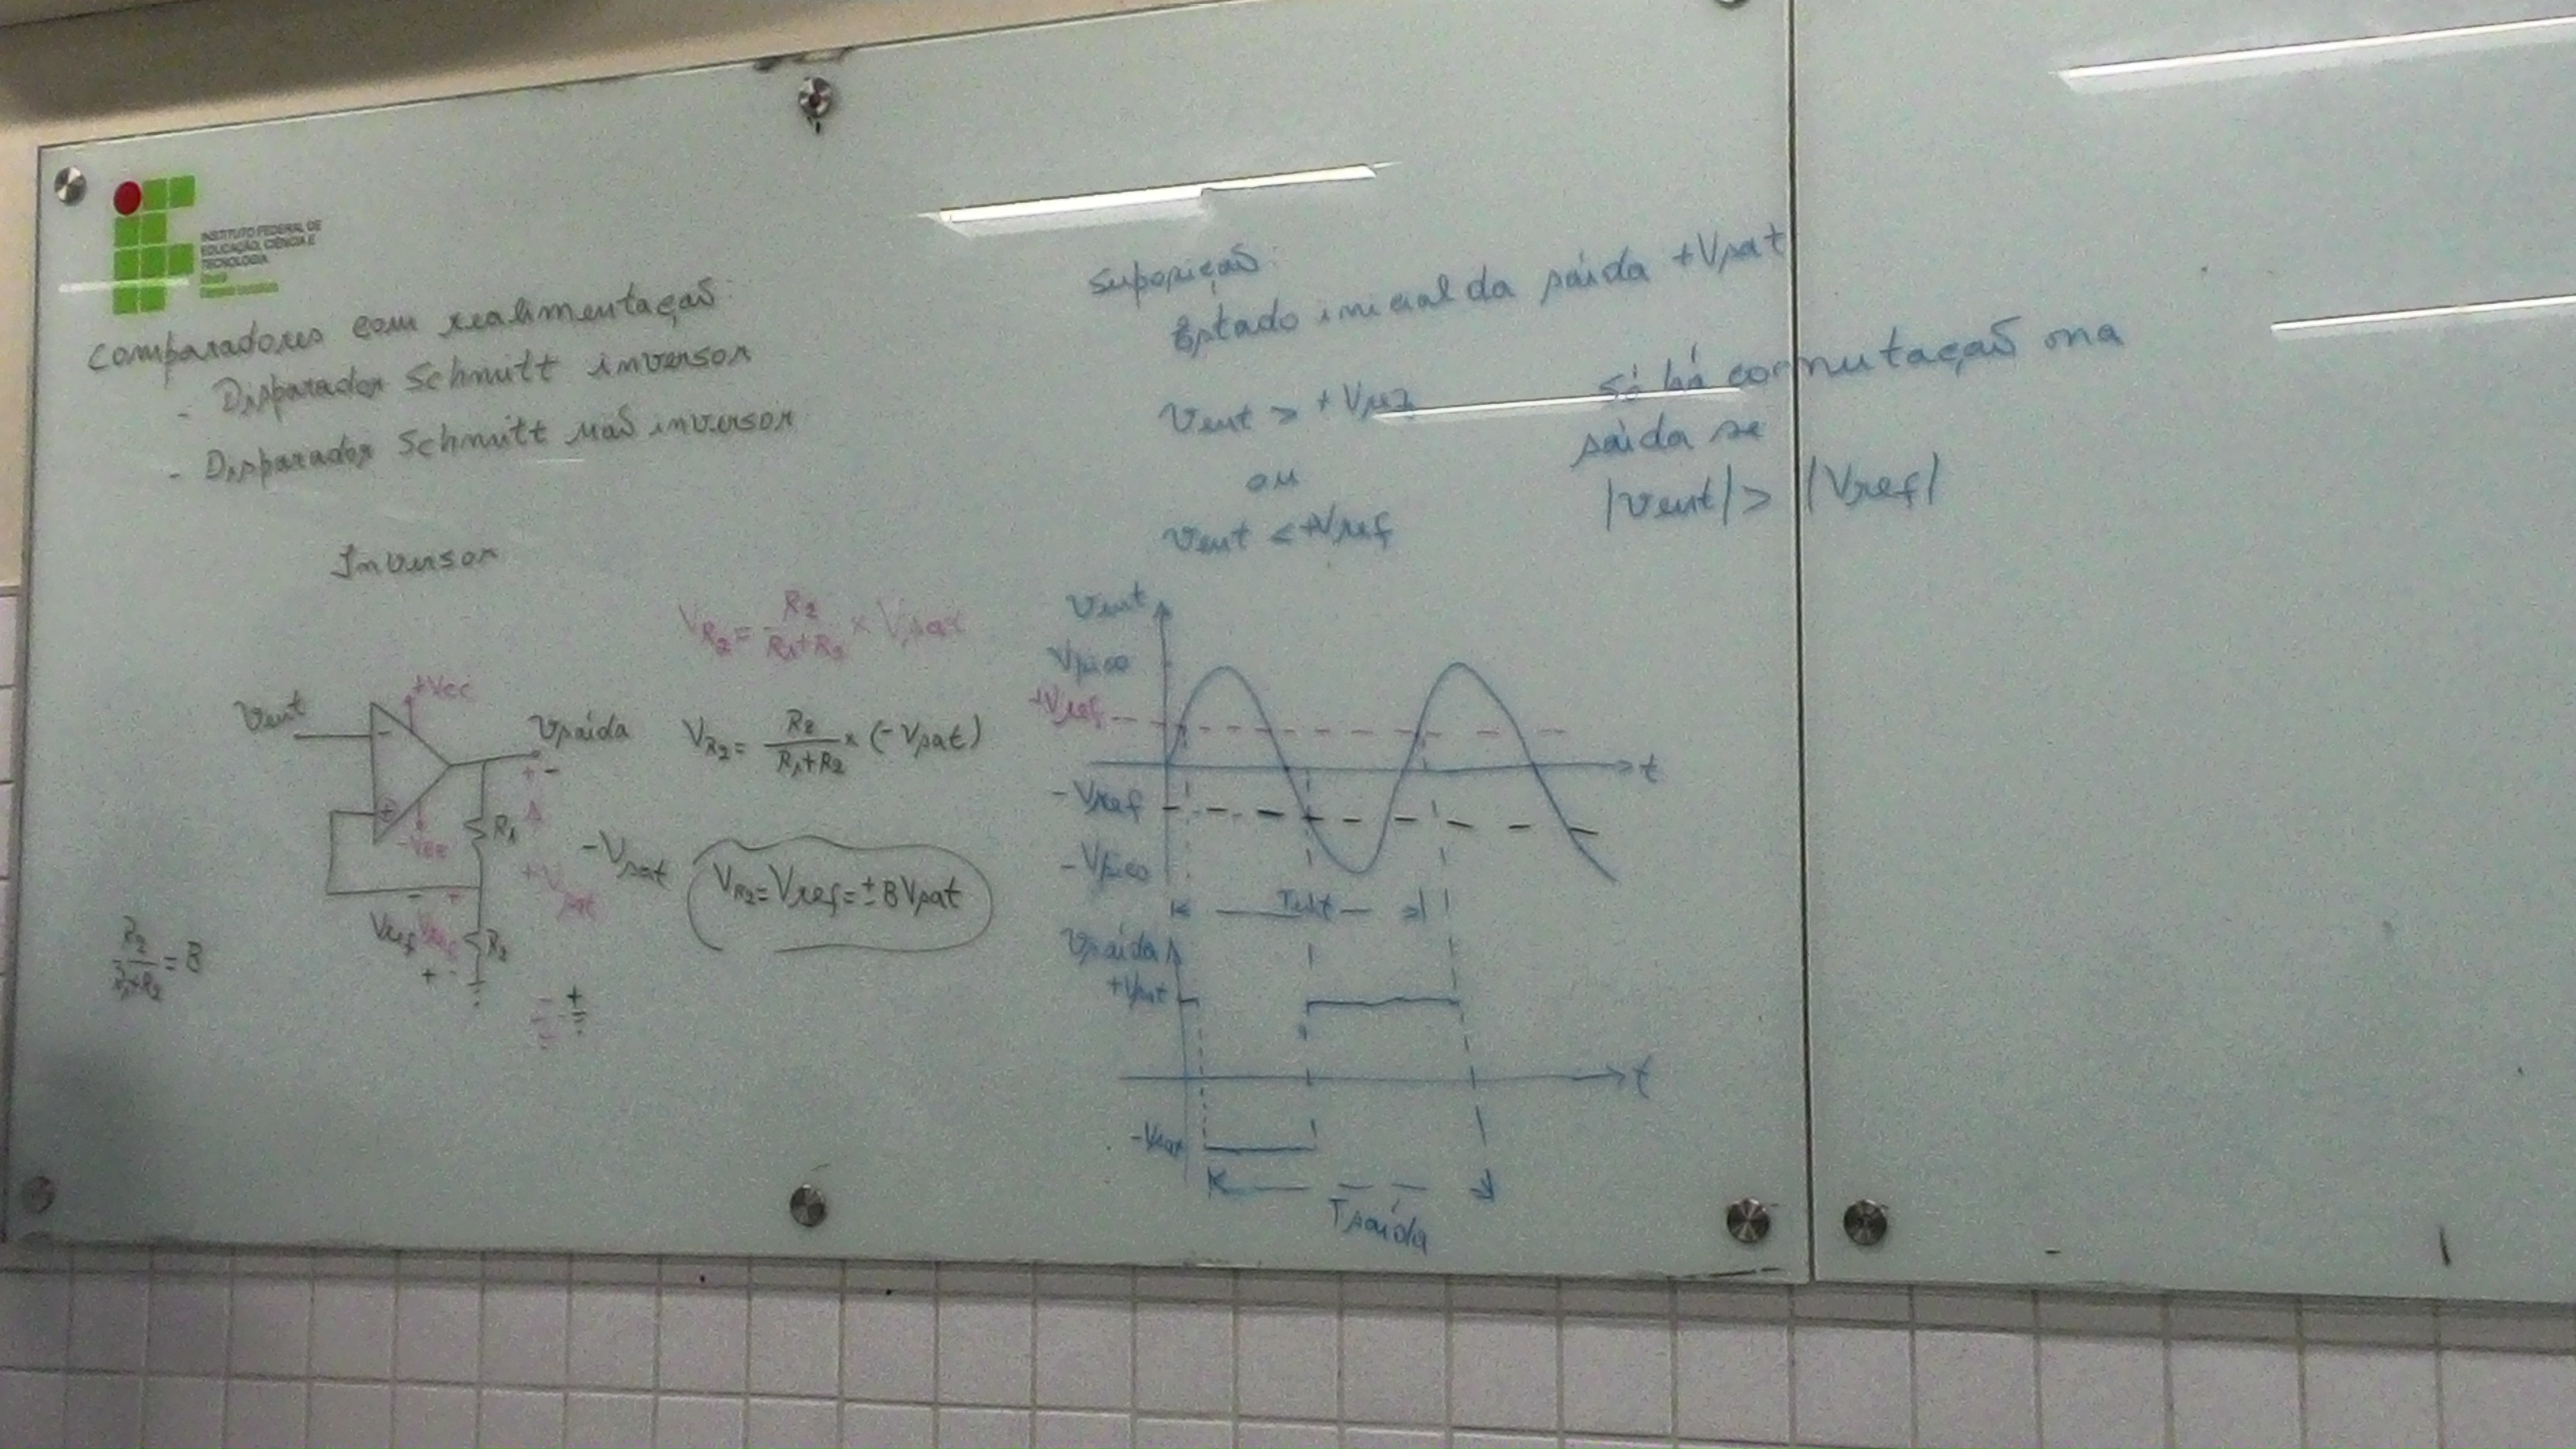 INSTITUTO FEDERAL DE
EDUCAÇÃO, CIÊNCIA E
TECNOLOGIA
Comparadores com realimentação:
- Disparador Schmitt inversor
- Disparador Schmitt não inversor
Inversor
VR2 = R2/(R1+R2) × Vsat
Vent
+Vcc
Vsaída
VR2 = R2/(R1+R2) × (-Vsat)
- +
+ -
R1
-Vcc
-Vsat
+Vsat
VR2 = Vref = ± B Vsat
- +
Vref Vref
R2
+ -
R2/(R1+R2) = B
Suposição:
Estado inicial da saída +Vsat
Vent > +Vref
ou
Vent < +Vref
Só há comutação na
saída se
|Vent| > |Vref|
Vent
Vpico
+Vref
t
-Vref
-Vpico
Tent
Vsaída
+Vsat
t
-Vsat
Tsaída